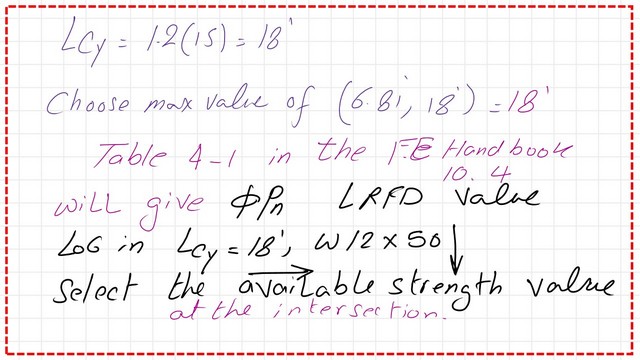 Lcy = 1.2(15) = 18'
Choose max value of (6.81', 18') = 18'
Table 4-1 in the FE Handbook
10.4
will give ΦPn LRFD value
LOG in Lcy = 18', W12x50
Select the available strength value
at the intersection.